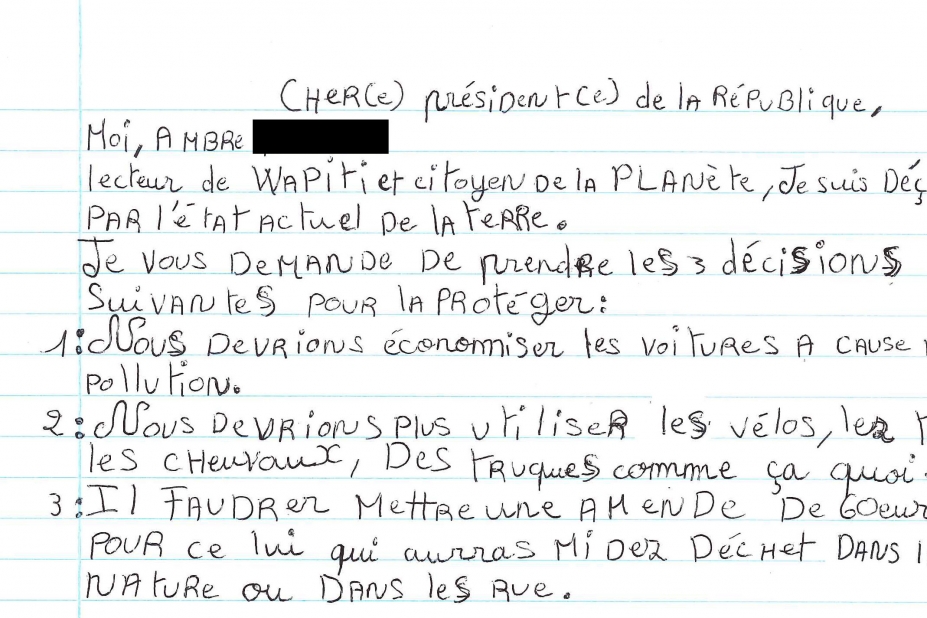 CHER(e) présiDent(e) de lA RéPuBlique,
Moi, AMBRe
lecteur de WAPiti et citoyen De lA PLANète, Je suis Déç
PAR l'étAt Actuel De lA teRRe.
Je vous DeMANDe De prendRe les 3 décisions
SuivANtes pouR lA PRotéger:
1: Nous DevRions économiser les voituRes A cAuse
pollution.
2: Nous DevRions Plus utiliseR les vélos, lez
les cHeuvaux, Des tRuques comme ça quoi.
3: Il FAuDRer MettRe une AMenDe De 60eur
PouR ce lui qui aurras Mi Dez DécHet DANS l
NAtuRe ou DANS les Rue.